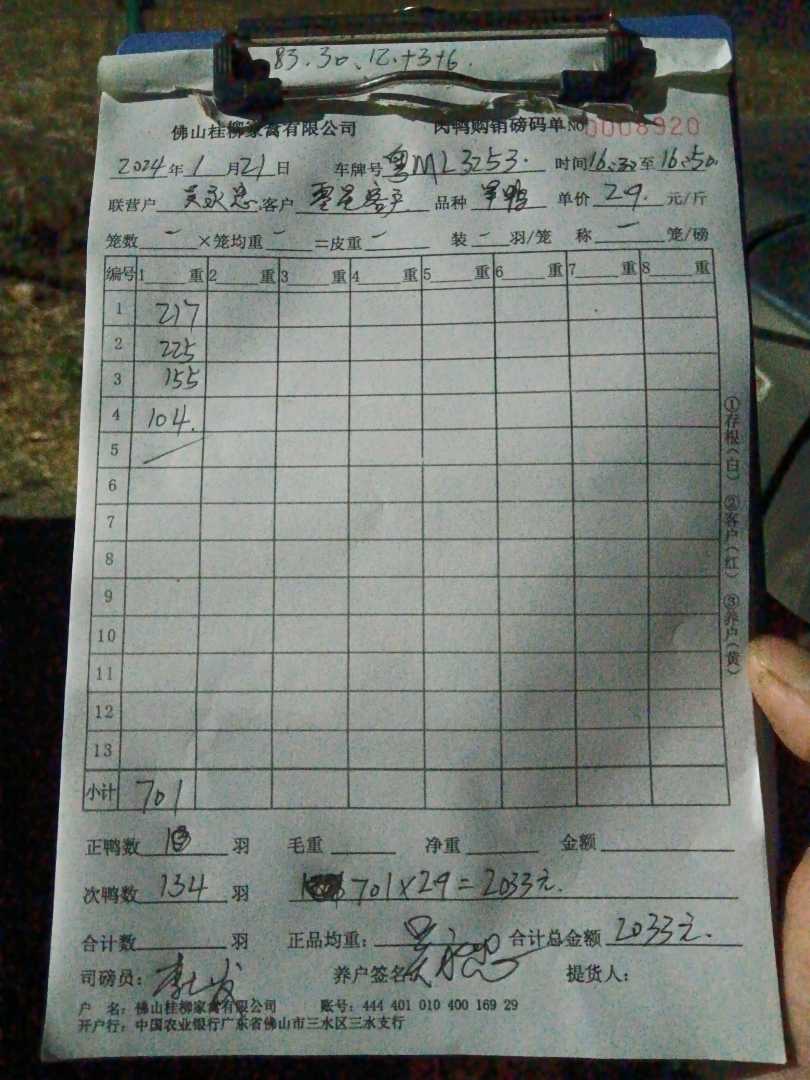 83.30、12.+3+6.
佛山桂柳家禽有限公司 肉鸭购销磅码单 No 0008920
2024年1月21日 车牌号 粤ML3253. 时间16:32至16:50.
联营户 吴永忠 客户 零星客户 品种 单价 29. 元/斤
笼数 一 ×笼均重 一 =皮重 一 装 一 羽/笼 称 一 笼/磅
编号 1 重 2 重 3 重 4 重 5 重 6 重 7 重 8 重
1 217
2 225
3 155
4 104.
5
6
7
8
9
10
11
12
13
小计 701
正鸭数 羽 毛重 净重 金额
次鸭数 134 羽 701×29=2033元.
合计数 羽 正品均重: 合计总金额 2033元.
司磅员: 养户签名 吴永忠 提货人:
户 名: 佛山桂柳家禽有限公司 账号: 444 401 010 400 169 29
开户行: 中国农业银行广东省佛山市三水区三水支行
①存根(白) ②客户(红) ③养户(黄)